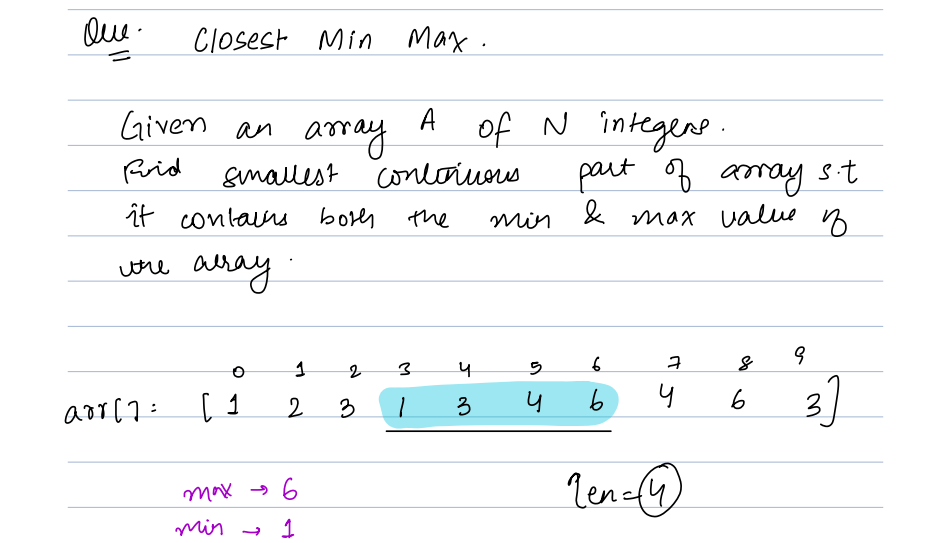 Que. Closest Min Max.
Given an array A of N integers.
Find smallest continuous part of array s.t
it contains both the min & max value of
the array.
0 1 2 3 4 5 6 7 8 9
arr[] = [ 1 2 3 1 3 4 6 4 6 3 ]
max → 6 len = 4
min → 1